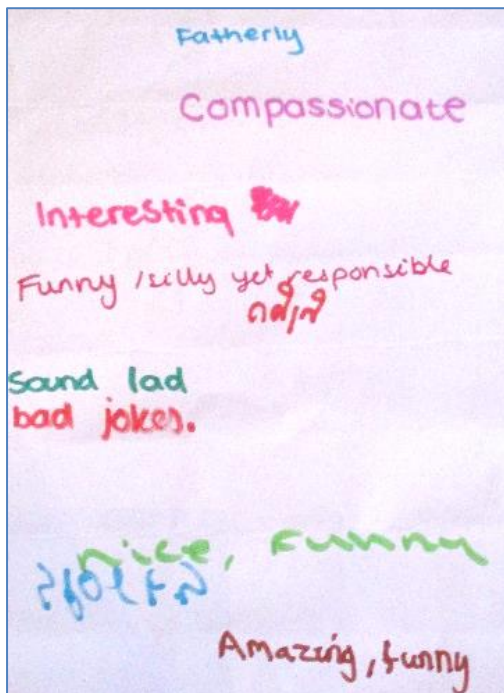 Fatherly
Compassionate
Interesting
Funny /silly yet responsible
Sound lad
bad jokes.
nice, Funny
Amazing, funny